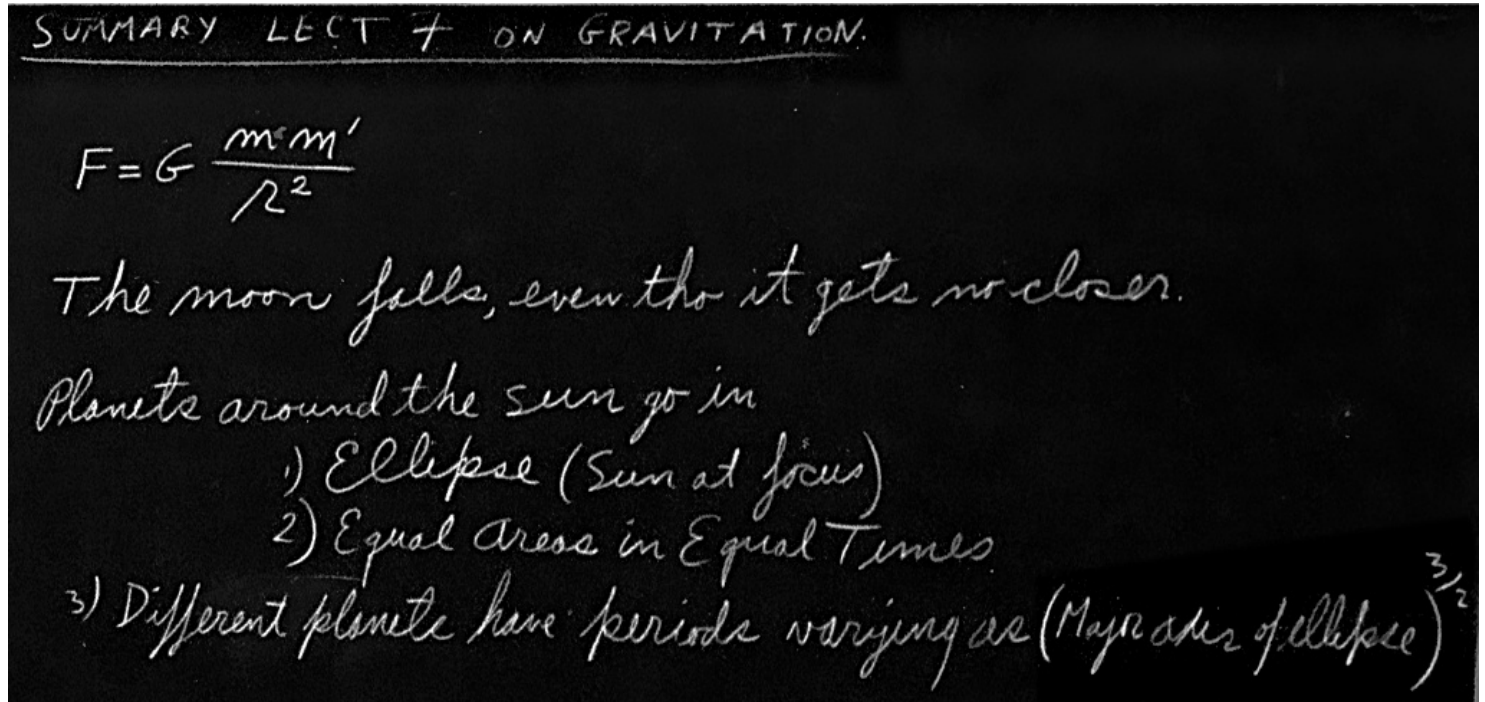 SUMMARY LECT 7 ON GRAVITATION.
F = G m m' / r²
The moon falls, even tho it gets no closer.
Planets around the sun go in
1) Ellipse (Sun at focus)
2) Equal Areas in Equal Times.
3) Different planets have periods varying as (Major axis of ellipse)^3/2